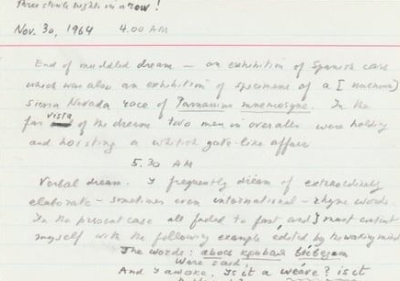 nights in a row!
Nov. 30, 1964 4.00 AM
End of muddled dream — an exhibition of Spanish
which was also an exhibition of specimens of a [
Sierra Nevada race of mnemosyne. In the
far vista of the dream two men in overalls were holding
and hoisting a whitish gate-like affair
5.30 AM
Verbal dream. I frequently dream of extraordinarily
elaborate – sometimes even international – rhyme words
In the present case all faded too fast, and I must content
myself with the following example edited by the waking mind
The words:
Were said,
And I awake. Is it a weave? is it